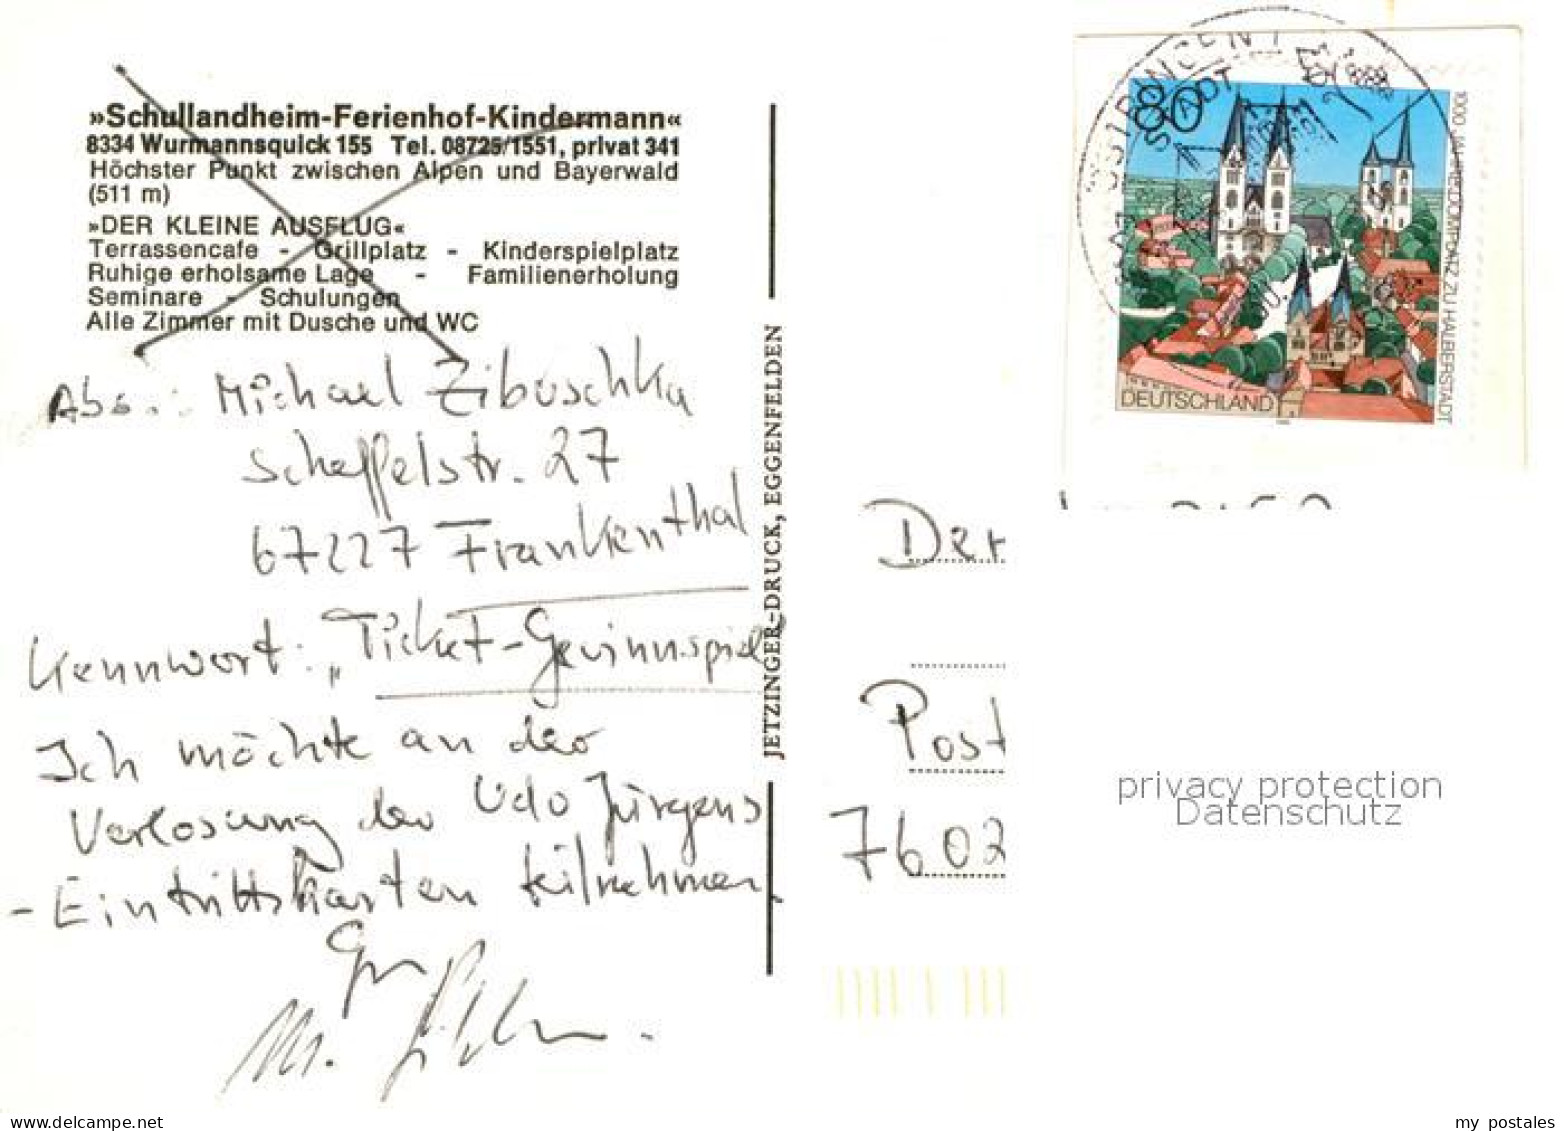 »Schullandheim-Ferienhof-Kindermann«
8334 Wurmannsquick 155 Tel. 08725/1551, privat 341
Höchster Punkt zwischen Alpen und Bayerwald
(511 m)
»DER KLEINE AUSFLUG«
Terrassencafe - Grillplatz - Kinderspielplatz
Ruhige erholsame Lage - Familienerholung
Seminare - Schulungen
Alle Zimmer mit Dusche und WC
Abs.: Michael Zibuschka
Scheffelstr. 27
67227 Frankenthal
Kennwort: „Ticket-Gewinnspiel
Ich möchte an der
Verlosung der Udo Jürgens
- Eintrittskarten teilnehmen,
JETZINGER-DRUCK, EGGENFELDEN
80
1000 JAHRE DOMPLATZ ZU HALBERSTADT
DEUTSCHLAND
Der
Post
7602
privacy protection
Datenschutz
delcampe.net
my postales